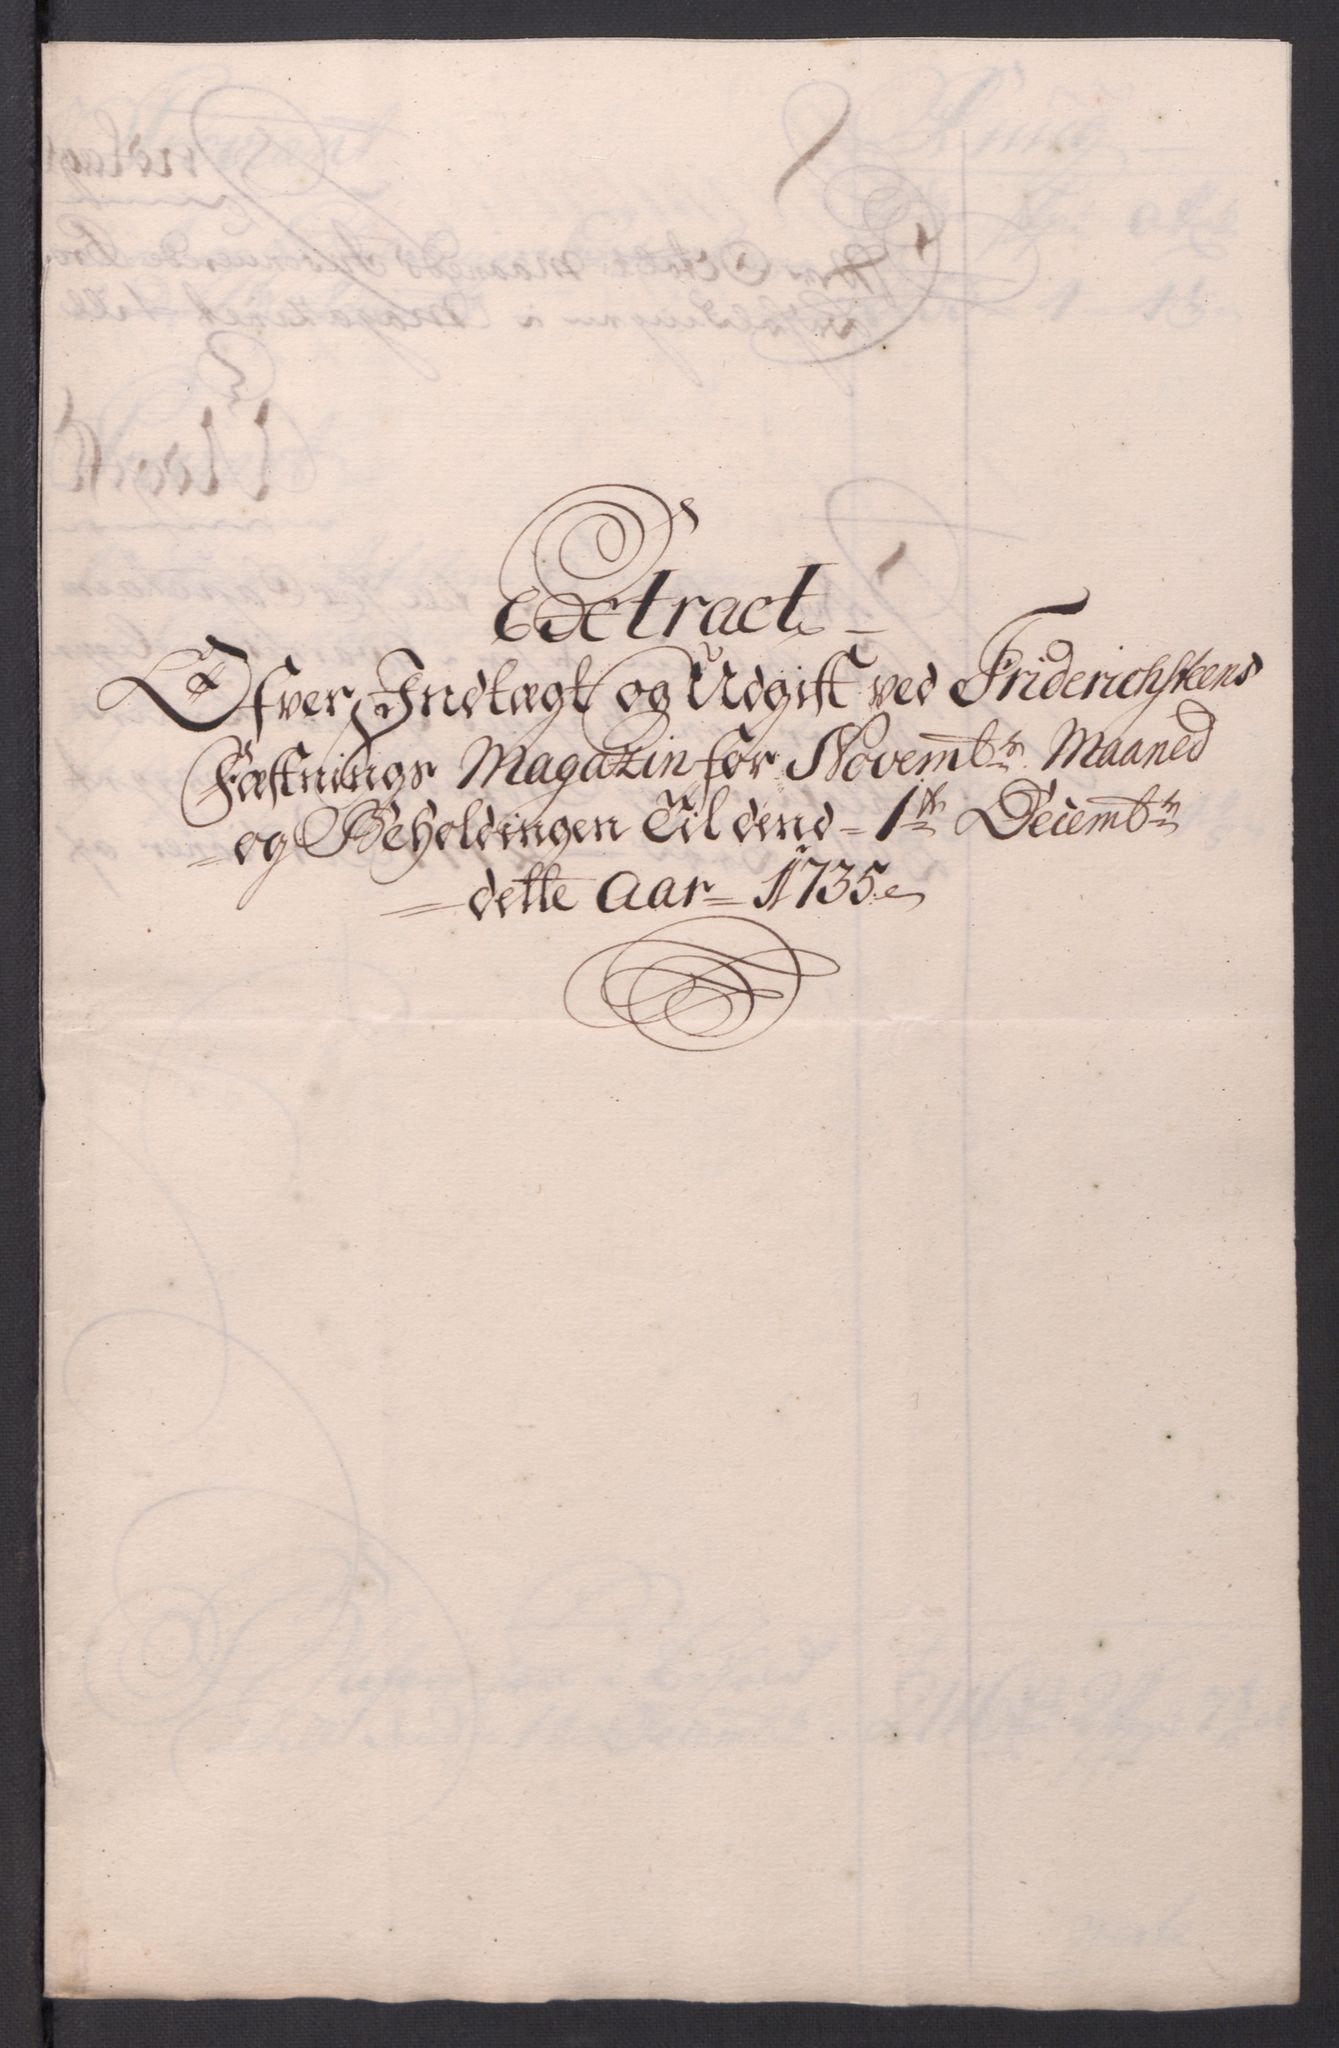 Extract
Ofver Indtægt og Udgift ved Friderichsteens
Fæstnings Magazin for Novembr. Maaned
og Beholdingen Til dend 1te Decembr.
dette Aar 1735